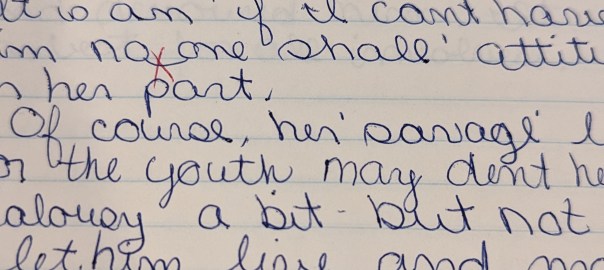 it is an 'if I can't have
im no one shall' attitu
her part.
Of course, her 'savage' l
or the youth may dent he
alousy a bit - but not
let him live and